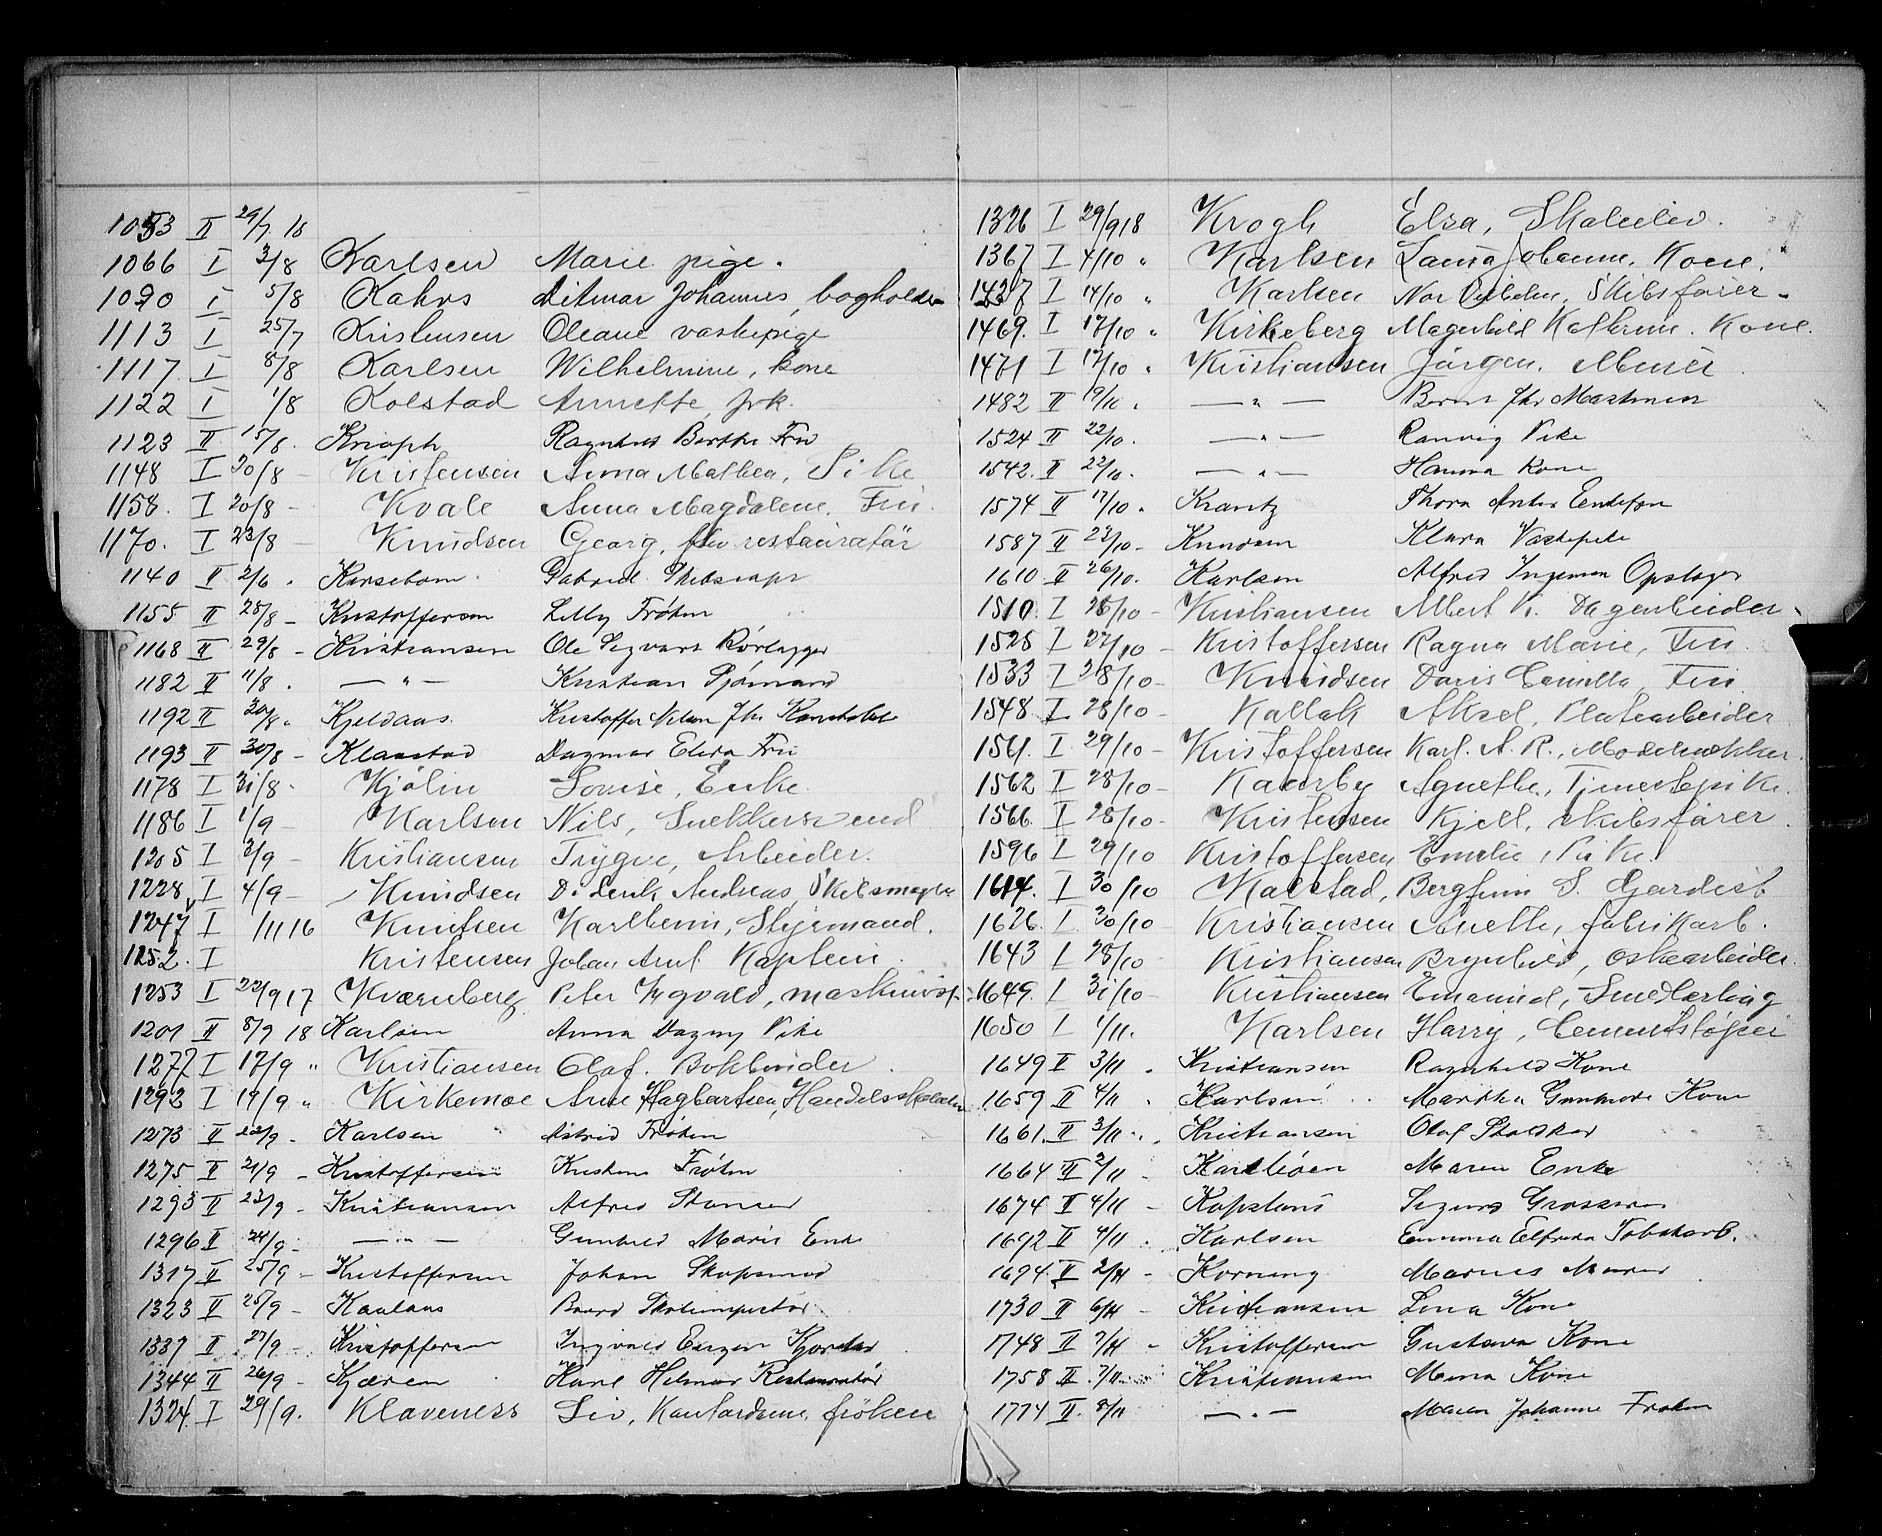 1053 II 29/7 18
1066 I 3/8 Karlsen Marie pige.
1090 I 5/8 Kahrs Ditmar Johannes, bogholder
1113 I 25/7 Kristensen Oleane vaskepige
1117 I 8/8 Karlsen Wilhelmine, kone
1122 I 1/8 Kolstad Annette, frk.
1123 II 15/8. Knoph Berthe Fru
1148 I 20/8 - Kristensen Anna Mathea, Pike
1158. I 20/8 - Kvale Anna Magdalene, Fru.
1170. I 23/8 - Knudsen Georg, restauratør
1140 II 2/6 . Kirsebom Gabriel Skibscapt
1155 II 28/8 - Kristoffersen Lilly Frøken
1168 II 29/8 - Kristiansen Ole Sigvart Rørlægger
1182 II 11/8 . — " — Kristian Sjømand
1192 II 30/8 " Kjeldaas Kristoffer Nilsen fhv Konstabel
1193 II 30/8 - Klaastad Dagmar Elida Fru
1178 I 31/8 - Kjølin Lovise, Enke
1186 I 1/9 - Karlsen Nils, Snekkersvend
1205 I 3/9 - Kristiansen Trygve, Arbeider.
1228 I 4/9 - Knudsen Diderik Andreas, Skibsmægler
1247 I 1/11 16 Knutsen Karlhem, Styrmand.
1252. I Kristensen Johan Arnt Kaptein.
1253 I 22/9 17 Kværnberg Peter Sygvald, maskinist
1201 II 8/9 18 Karlsen Anna Dagny Pike
1277 I 17/9 " Kristiansen Olaf. Bokbinder
1292 I 19/9 " Kirkemoe Arne Hagbartsen, Handelsskoleelev
1273 II 22/9 - Karlsen Astrid Frøken
1275 II 21/9 - Kristoffersen Kristine Frøken
1293 II 23/9 - Kristiansen Alfred Stenser
1296 II 24/9 - — " — Gunhild Marie Enke
1317 II 25/9 - Kristoffersen Johan Skopsmed
1323 II 25/9 - Kaalaas Baard Skoleinspektør
1337 II 27/9 - Kristoffersen Ingvald
1344 II 26/9 - Kjærem Karl Helmar Restauratør
1324. I 29/9. Klaveness Siv, frøken
1326 I 29/9 18 Krogh Elsa, Skoleelev.
1367 I 4/10 " Karlsen Laura Johanne. Kone.
1437 I 14/10 " Karlsen Nor Vilhelm, Skibsfører
1469. I 17/10 " Kirkeberg Magnhild Kathrine. Kone.
1471 I 17/10 " Kristiansen Jørgen. Murer
1482 II 19/10 . — " — Bernt fhv Maskinist
1524 II 22/10. — " — Ranvig Pike
1542. II 22/10. — " — Hanna Kone
1574 II 17/10 . Krantz Thora
1587 II 23/10 - Knudsen Klara Vaskepike
1610 II 26/10. Karlsen Alfred Ingeman Opslager
1510. I 25/10 - Kristiansen Albert K. Dagarbeider
1525 I 27/10 - Kristoffersen Ragna Marie, Fru.
1533 I 28/10 - Knudsen Doris Camilla, Fru
1548. I 28/10 - Kallak Aksel, Platearbeider
1561. I 29/10 - Kristoffersen Karl. A. R., Modelsnekker.
1562 I 28/10 - Kaarby Agnethe, Tjenestepike.
1566. I 28/10 - Kristensen Kjell, Skibsfører.
1596 I 29/10 Kristoffersen Emilie, Pike.
1614. I 30/10 Kalstad, Bergfinn S. Gardist
1626. I. 30/10 - Kristiansen Anette, fabrikarb.
1643 I 28/10 - Kristiansen Brynhild, eskearbeider.
1649. I 31/10 - Kristiansen Emanuel, Smedlærling
1650 I 1/11. Karlsen Harry, Cementstøper
1649 II 3/11 . Kristiansen Ragnhild Kone
1659 II 4/11 . Karlsen Martha Gunhilde Kone
1661. II 3/11 . Kristiansen Olaf
1664 II 2/11 - Karlsen Maren Enke
1674 II 4/11 - Sigurd Grosserer
1692 II 4/11 . Karlsen Emma Elfrida Tobakarb.
1694. II 2/11 - Kornung Marius Murer
1730 II 6/11 - Kristiansen Lina Kone
1748 II 7/11 - Kristoffersen Gustava Kone
1758 II 7/11 Kristiansen Mina Kone
1774 II. 8/11 — " — Maren Johanne Frøken